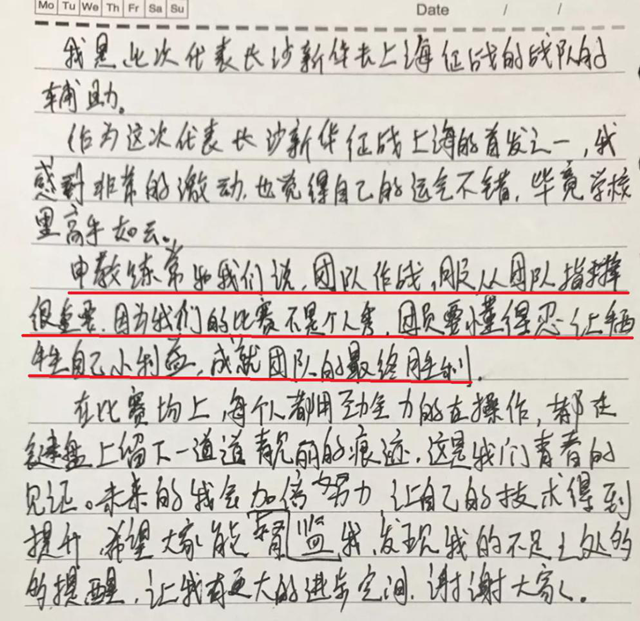 Mo Tu We Th Fr Sa Su
Date / /
我是此次代表长沙新华去上海征战的战队的
辅助。
作为这次代表长沙新华征战上海的首发之一,我
感到非常的激动,也觉得自己的运气不错,毕竟学校
里高手如云。
申教练常和我们说,团队作战,服从团队指挥
很重要,因为我们的比赛不是个人秀,团员要懂得忍让牺
牲自己小利益,成就团队的最终胜利。
在比赛场上,每个人都用劲全力的在操作,都在
键盘上留下一道道靓丽的痕迹,这是我们青春的
见证。未来的我会加倍努力,让自己的技术得到
提升,希望大家能督监我,发现我的不足之处的
的提醒,让我有更大的进步空间,谢谢大家。